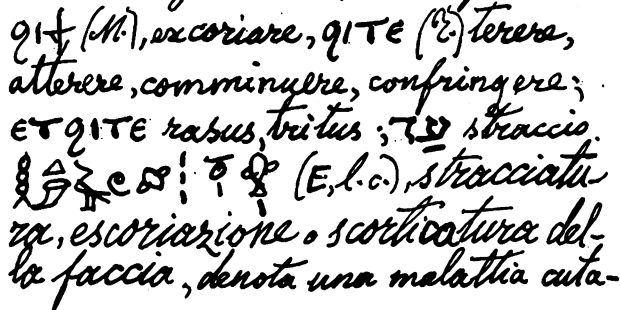 ϥⲓϯ (M.), excoriare, ϥⲓⲧⲉ (Z.) terere,
atterere, comminuere, confringere;
ⲉⲧϥⲓⲧⲉ rasus, tritus; straccio.
(E, l.c.), stracciatu-
ra, escoriazione o scorticatura del-
la faccia, denota una malattia cuta-